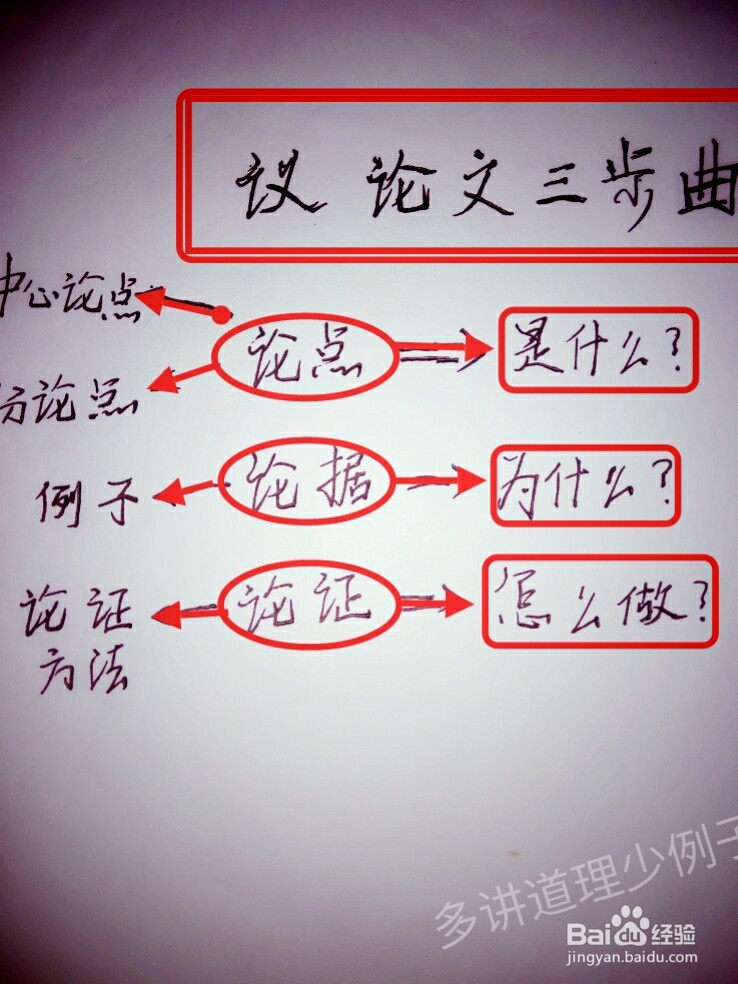 议论文三步曲
中心论点
论点 是什么？
分论点
例子 论据 为什么？
论证 论证 怎么做？
方法
多讲道理少例子
Baidu经验
jingyan.baidu.com